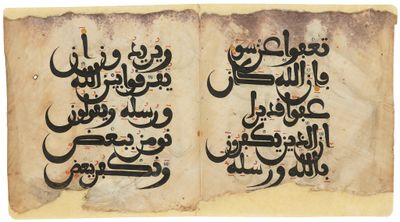 تعفوا عن سوء
فإن الله كان
عفوا قديرا
إن الذين يكفرون
بالله ورسله
ويريدون أن
يفرقوا بين الله
ورسله ويقولون
نومن ببعض
ونكفر ببعض